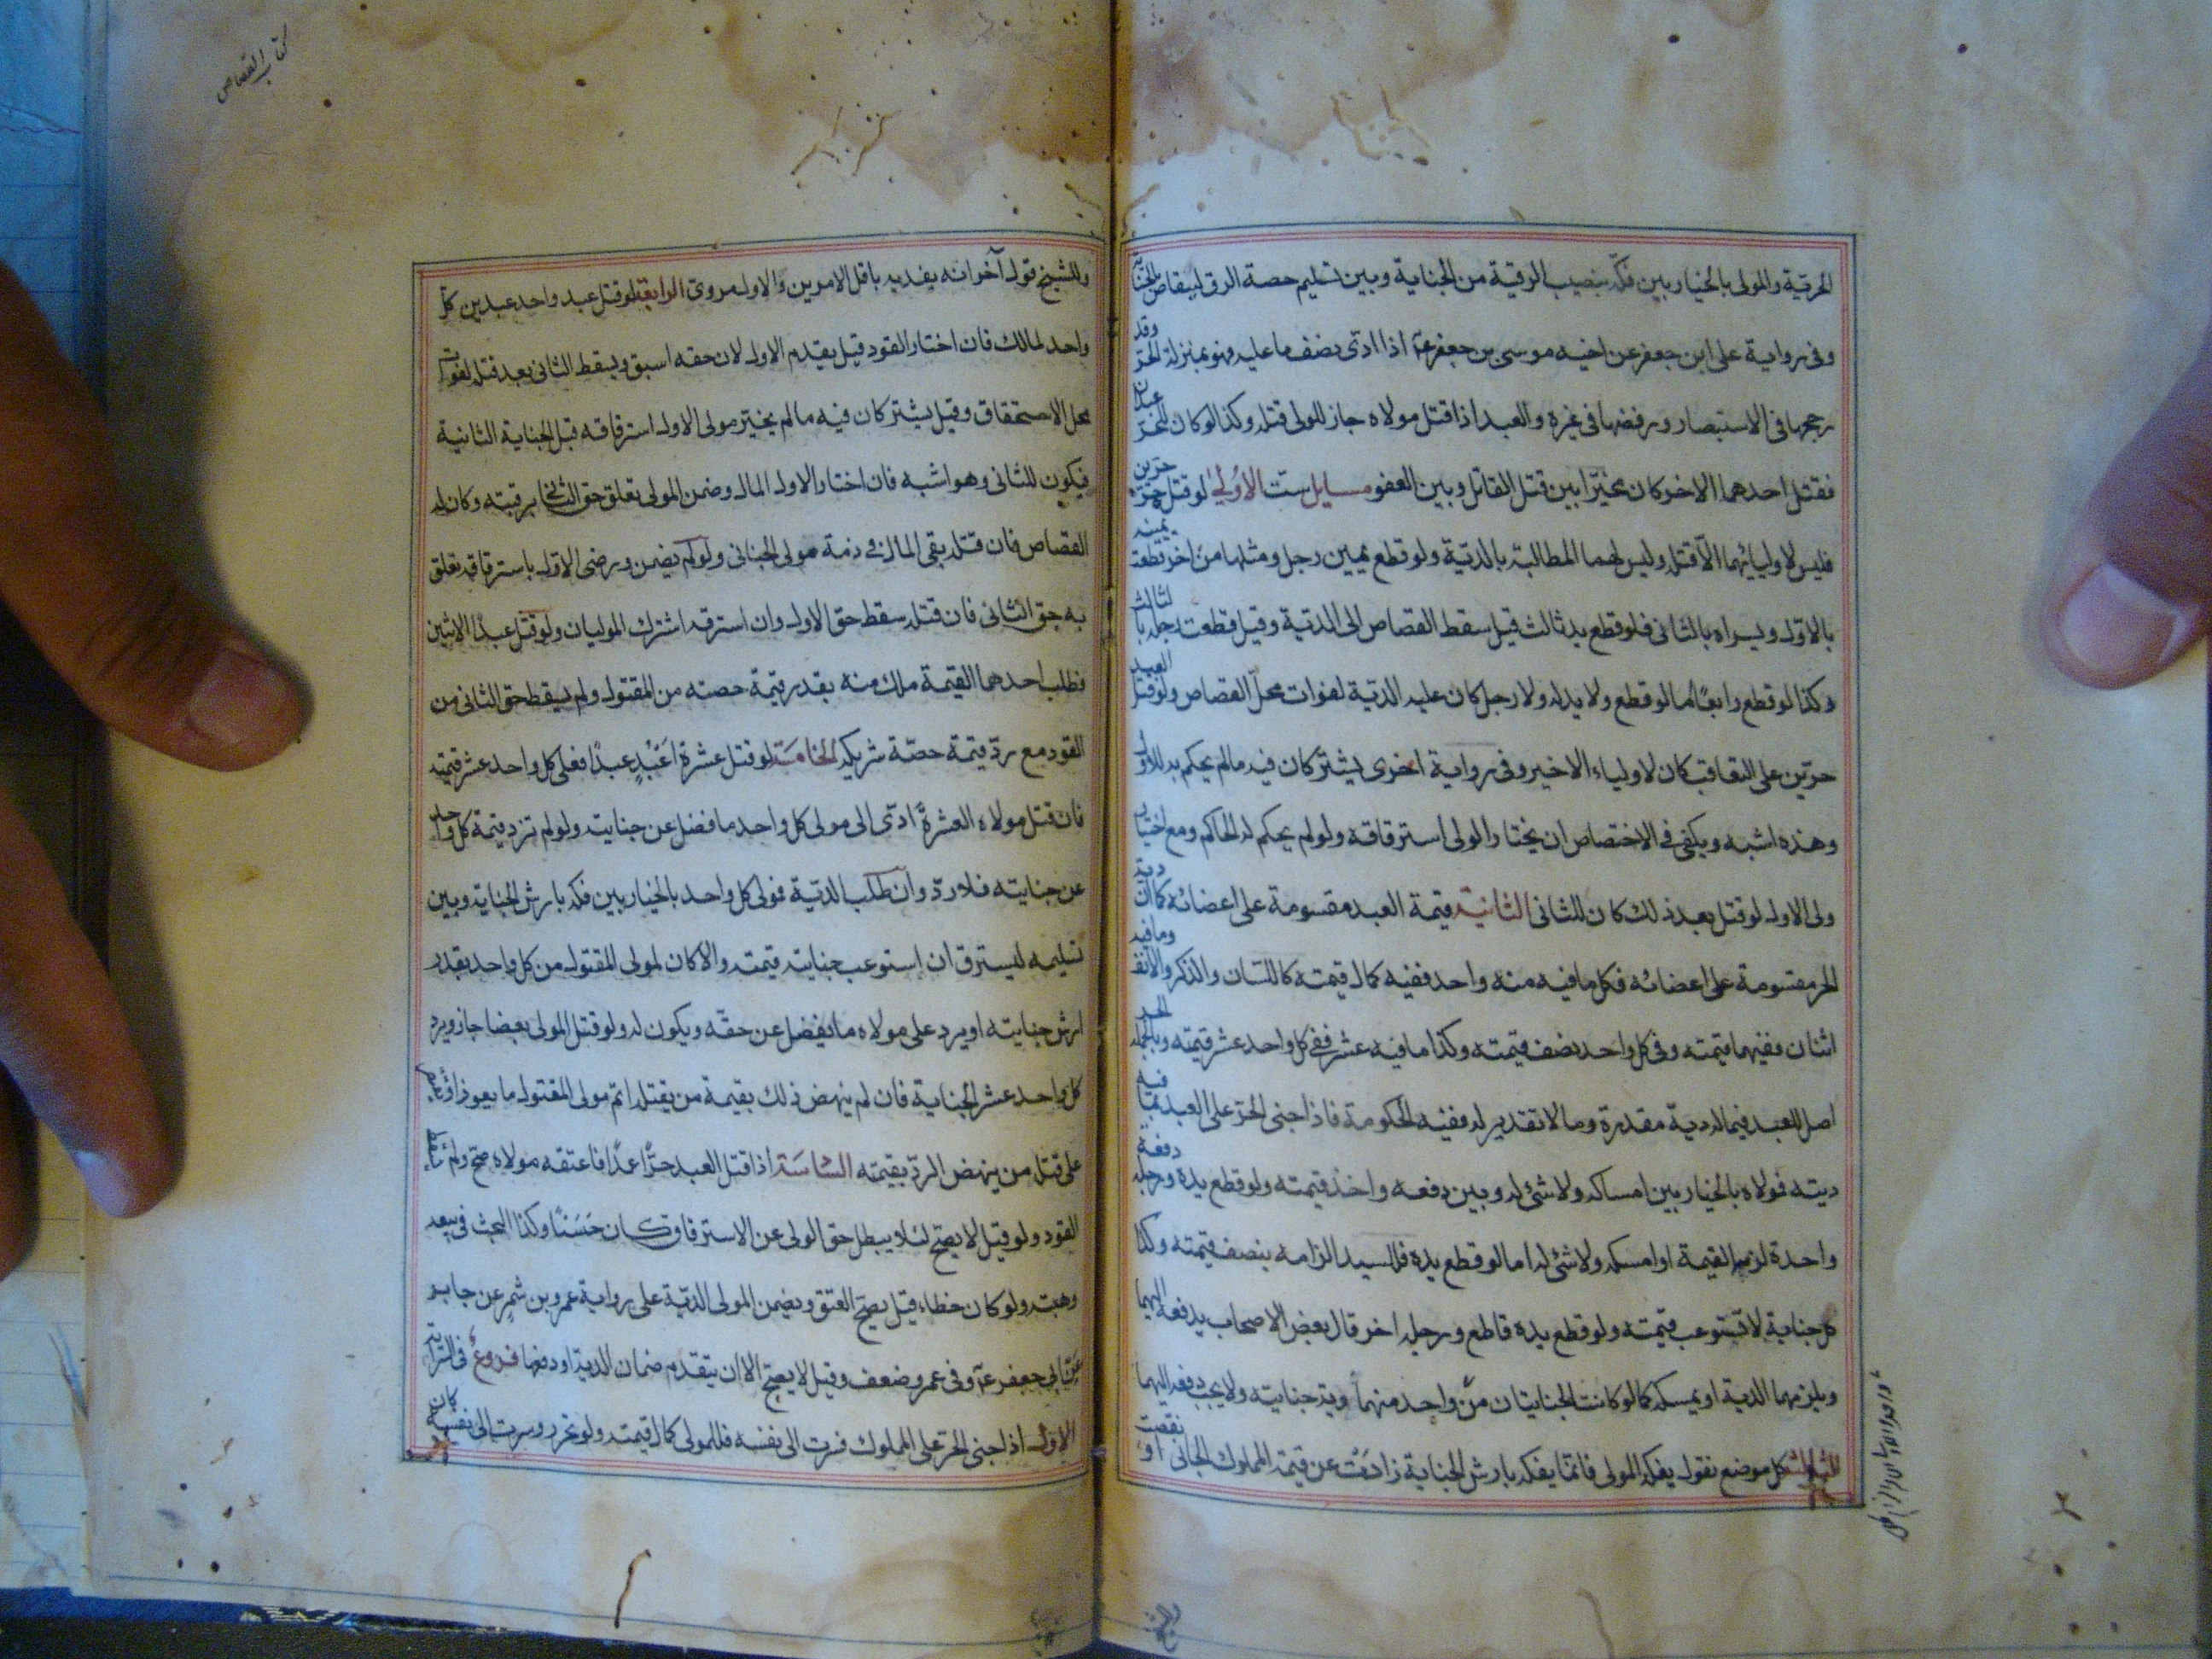 الحرية والمولى بالخيار بين فكّه بنصيب الرقية من الجناية وبين تسليم حصة الرق ليقاص بالجناية
وفي رواية على ابن جعفر عن اخيه موسى بن جعفر عؑ اذا ادّى نصف ما عليه فهو بمنزلة الحرّ وقد
رجحها في الاستبصار ورفضها في غيره والعبد اذا قتل مولاه جاز للولى قتله وكذا لو كان للحرّ عبدان
فقتل احدهما الاخر كان مخيّرا بين قتل القاتل وبين العفو مسايل ست الاولى لو قتل حرّ حرّين
فليس لاوليائهما الّا قتله وليس لهما المطالبة بالديّة ولو قطع يمين رجل ومثلها من اخر قطعت يمينه
بالاوّل ويسراه بالثانى فلو قطع يد ثالث قيل سقط القصاص الى الديّة وقيل قطعت رجله بالثالث
وكذا لو قطع رابعًا اما لو قطع ولا يد له ولا رجل كان عليه الديّة لفوات محلّ القصاص ولو قتل العبد
حرّين على التعاقب كان لاولياء الاخير وفي رواية اخرى يشتركان فيه ما لم يحكم به للاول
وهذه اشبه ويكفى في الاختصاص ان يختار الولى استرقاقه ولو لم يحكم له الحاكم ومع اختيار
ولى الاول لو قتل بعد ذلك كان للثانى الثانية قيمة العبد مقسومة على اعضائه كما ان دية
الحر مقسومة على اعضائه فكل ما فيه منه واحد ففيه كمال قيمته كاللسان والذكر والانف وما فيه
اثنان ففيهما قيمته وفي كل واحد نصف قيمته وكذا ما فيه عشر ففي كل واحد عشر قيمته وبالجملة الحر
اصل للعبد فيما له دية مقدرة وما لا تقدير له ففيه الحكومة فاذا جنى الحرّ على العبد بما فيه
ديته فمولاه بالخيار بين امساكه ولا شئ له وبين دفعه واخذ قيمته ولو قطع يده ورجله دفعة
واحدة لزمه القيمة او امسكه ولا شئ له اما لو قطع يده فللسيد الزامه بنصف قيمته وكذا
كل جناية لا تستوعب قيمته ولو قطع يده قاطع ورجله اخر قال بعض الاصحاب يدفعه اليهما
ويلزمهما الدية او يمسكه كما لو كانت الجنايتان من واحد
الثالثة كل موضع نقول يفكه المولى فانّما يفكه بارش الجناية زادت عن قيمة المملوك الجانى او نقصت
كتاب القصاص
وللشيخ قول آخر انه يفديه باقل الامرين والاول مروى الرابعة لو قتل عبد واحد عبدين كل
واحد لمالك فان اختار القود قيل يقدم الاول لان حقه اسبق ويسقط الثانى بعد قتله لفوات
محل الاستحقاق وقيل يشتركان فيه ما لم يختر مولى الاول استرقاقه قبل الجناية الثانية
فيكون للثانى وهو اشبه فان اختار الاول المال وضمن المولى تعلق حق الثانى برقبته وكان له
القصاص فان قتله بقى المال في ذمة مولى الجانى ولو لم يضمن ورضى الاول باسترقاقه تعلق
به حق الثانى فان قتله سقط حق الاول وان استرقه اشترك الموليان ولو قتل عبدًا لاثنين
فطلب احدهما القيمة ملك منه بقدر قيمة حصته من المقتول ولم يسقط حق الثانى من
القود مع ردّ قيمة حصّة شريكه الخامسة لو قتل عشرة اَعْبُدٍ عبدًا فعلى كل واحد عشر قيمته
فان قتل مولاه العشرة ادّى الى مولى كل واحد ما فضل عن جنايته ولو لم تزد قيمة كل واحد
عن جنايته فلا ردّ وان طلب الديّة فمولى كل واحد بالخيار بين فكه بارش الجناية وبين
تسليمه ليسترق ان استوعب جنايته قيمته والا كان لمولى المقتول من كل واحد بقدر
ارش جنايته او يرد على مولاه ما يفضل عن حقّه ويكون له ولو قتل المولى بعضا جاز ويرد
كل واحد عشر الجناية فان لم ينهض ذلك بقيمة من يقتله اتم مولى المقتول ما يعوز او
على قتل من ينهض الردّ بقيمته السادسة اذا قتل العبد حرًّا عمدًا فاعتقه مولاه صح ولم
القود ولو قيل لا يصح لئلا يبطل حق الولى عن الاسترقاق كان حَسَنًا وكذا البحث في بيعه
وهبته ولو كان خطاء قيل يصح العتق ويضمن المولى الديّة على رواية عمرو بن شمر عن جابر
عن ابي جعفر عؑ وفي عمرو ضعف وقيل لا يصح الا ان يتقدم ضمان الدية او دفعها فروعٌ في السراية
الاول اذا جنى الحرّ على المملوك فسرت الى نفسه فللمولى كمال قيمته ولو تحرر وسرت الى نفسه كان